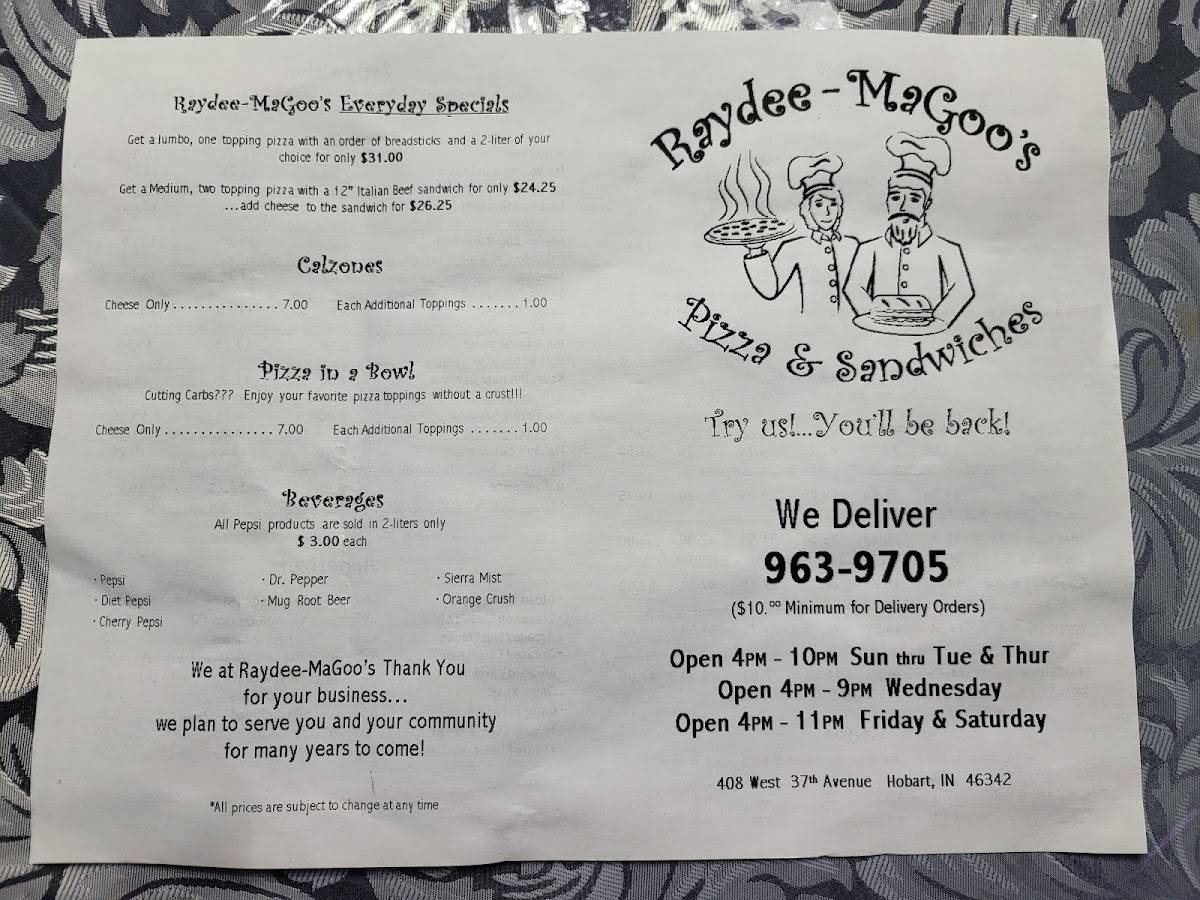 Raydee-MaGoo's Everyday Specials
Get a Jumbo, one topping pizza with an order of breadsticks and a 2-liter of your
choice for only $31.00
Get a Medium, two topping pizza with a 12" Italian Beef sandwich for only $24.25
...add cheese to the sandwich for $26.25
Calzones
Cheese Only . . . . . . . . . . . . . . . 7.00 Each Additional Toppings . . . . . . . 1.00
Pizza in a Bowl
Cutting Carbs??? Enjoy your favorite pizza toppings without a crust!!!
Cheese Only . . . . . . . . . . . . . . . 7.00 Each Additional Toppings . . . . . . . 1.00
Beverages
All Pepsi products are sold in 2-liters only
$ 3.00 each
· Pepsi · Dr. Pepper · Sierra Mist
· Diet Pepsi · Mug Root Beer · Orange Crush
· Cherry Pepsi
We at Raydee-MaGoo's Thank You
for your business...
we plan to serve you and your community
for many years to come!
*All prices are subject to change at any time
Raydee-MaGoo's
Pizza & Sandwiches
Try us!...You'll be back!
We Deliver
963-9705
($10.⁰⁰ Minimum for Delivery Orders)
Open 4PM - 10PM Sun thru Tue & Thur
Open 4PM - 9PM Wednesday
Open 4PM - 11PM Friday & Saturday
408 West 37th Avenue Hobart, IN 46342